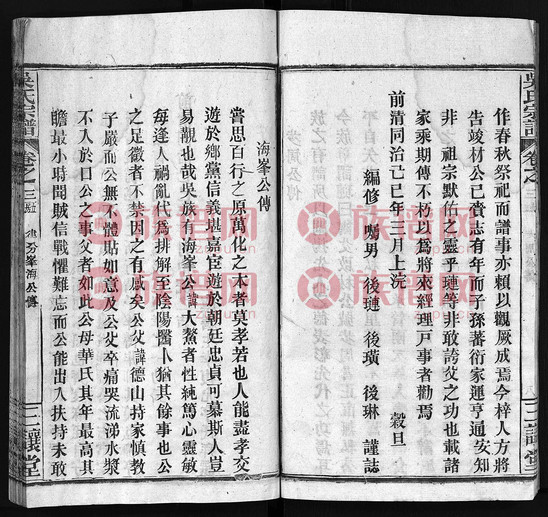 吳氏宗譜
卷之三
作春秋祭祀而譜事亦賴以觀厥成焉今梓人方將
告竣材公已賫志有年而子孫蕃衍家運亨通安知
非 祖宗默佑之靈乎璉等非敢誇父之功也載諸
家乘期傳不朽以為將來經理戸事者勸焉
前清同治己巳年三月上浣 穀旦
編修 嗣男 後璉 後璜 後琳 謹誌
三讓堂
海峯公傳
嘗思百行之原萬化之本者莫孝若也人能盡孝交
遊於鄉黨信義堪嘉宦遊於朝廷忠貞可慕斯人豈
易覯也哉吳族有海峯公諱大鰲者性純篤心靈敏
每逢人禍亂代為排解至陰陽醫卜猶其餘事也公
之足徵者不禁因之有感矣公父諱德山持家慎教
子嚴而公無不體貼如意及公父卒痛哭流涕水漿
不入於口公之事父者如此公母華氏其年最高其
瞻最小時聞賊信戰懼難忘而公能出入扶持未敢
吳氏宗譜
卷之三
海峯公傳
三讓堂
族譜网